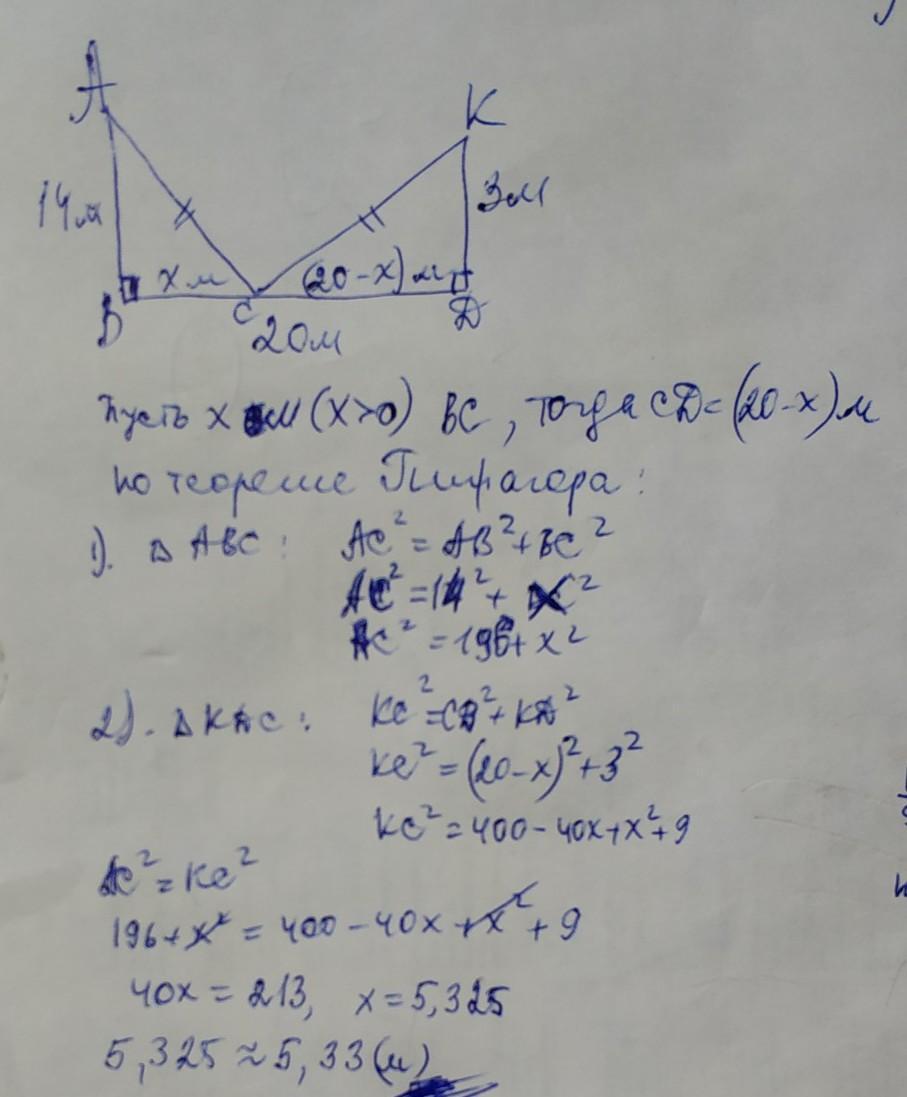 A
K
14м
3м
x м
(20-x) м
B
C
Д
20м
Пусть x м (x>0) BC, тогда CД=(20-x)м
По теореме Пифагора:
1). Δ ABC: AC² = AB²+BC²
AC² = 14² + X²
AC² = 196+x²
2). Δ KДC: KC²=CД²+KД²
KC² = (20-x)²+3²
KC² = 400-40x+x²+9
AC² = KC²
196+x² = 400-40x+x²+9
40x = 213, x=5,325
5,325≈5,33(м)